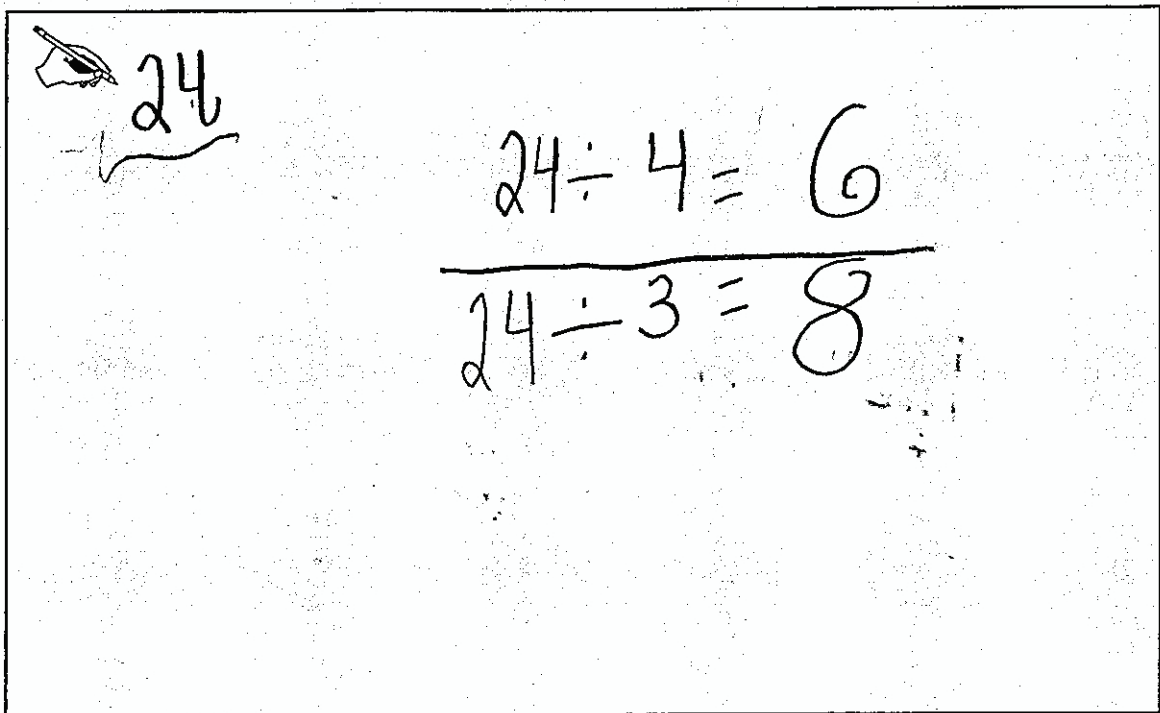 24
24 ÷ 4 = 6
24 ÷ 3 = 8